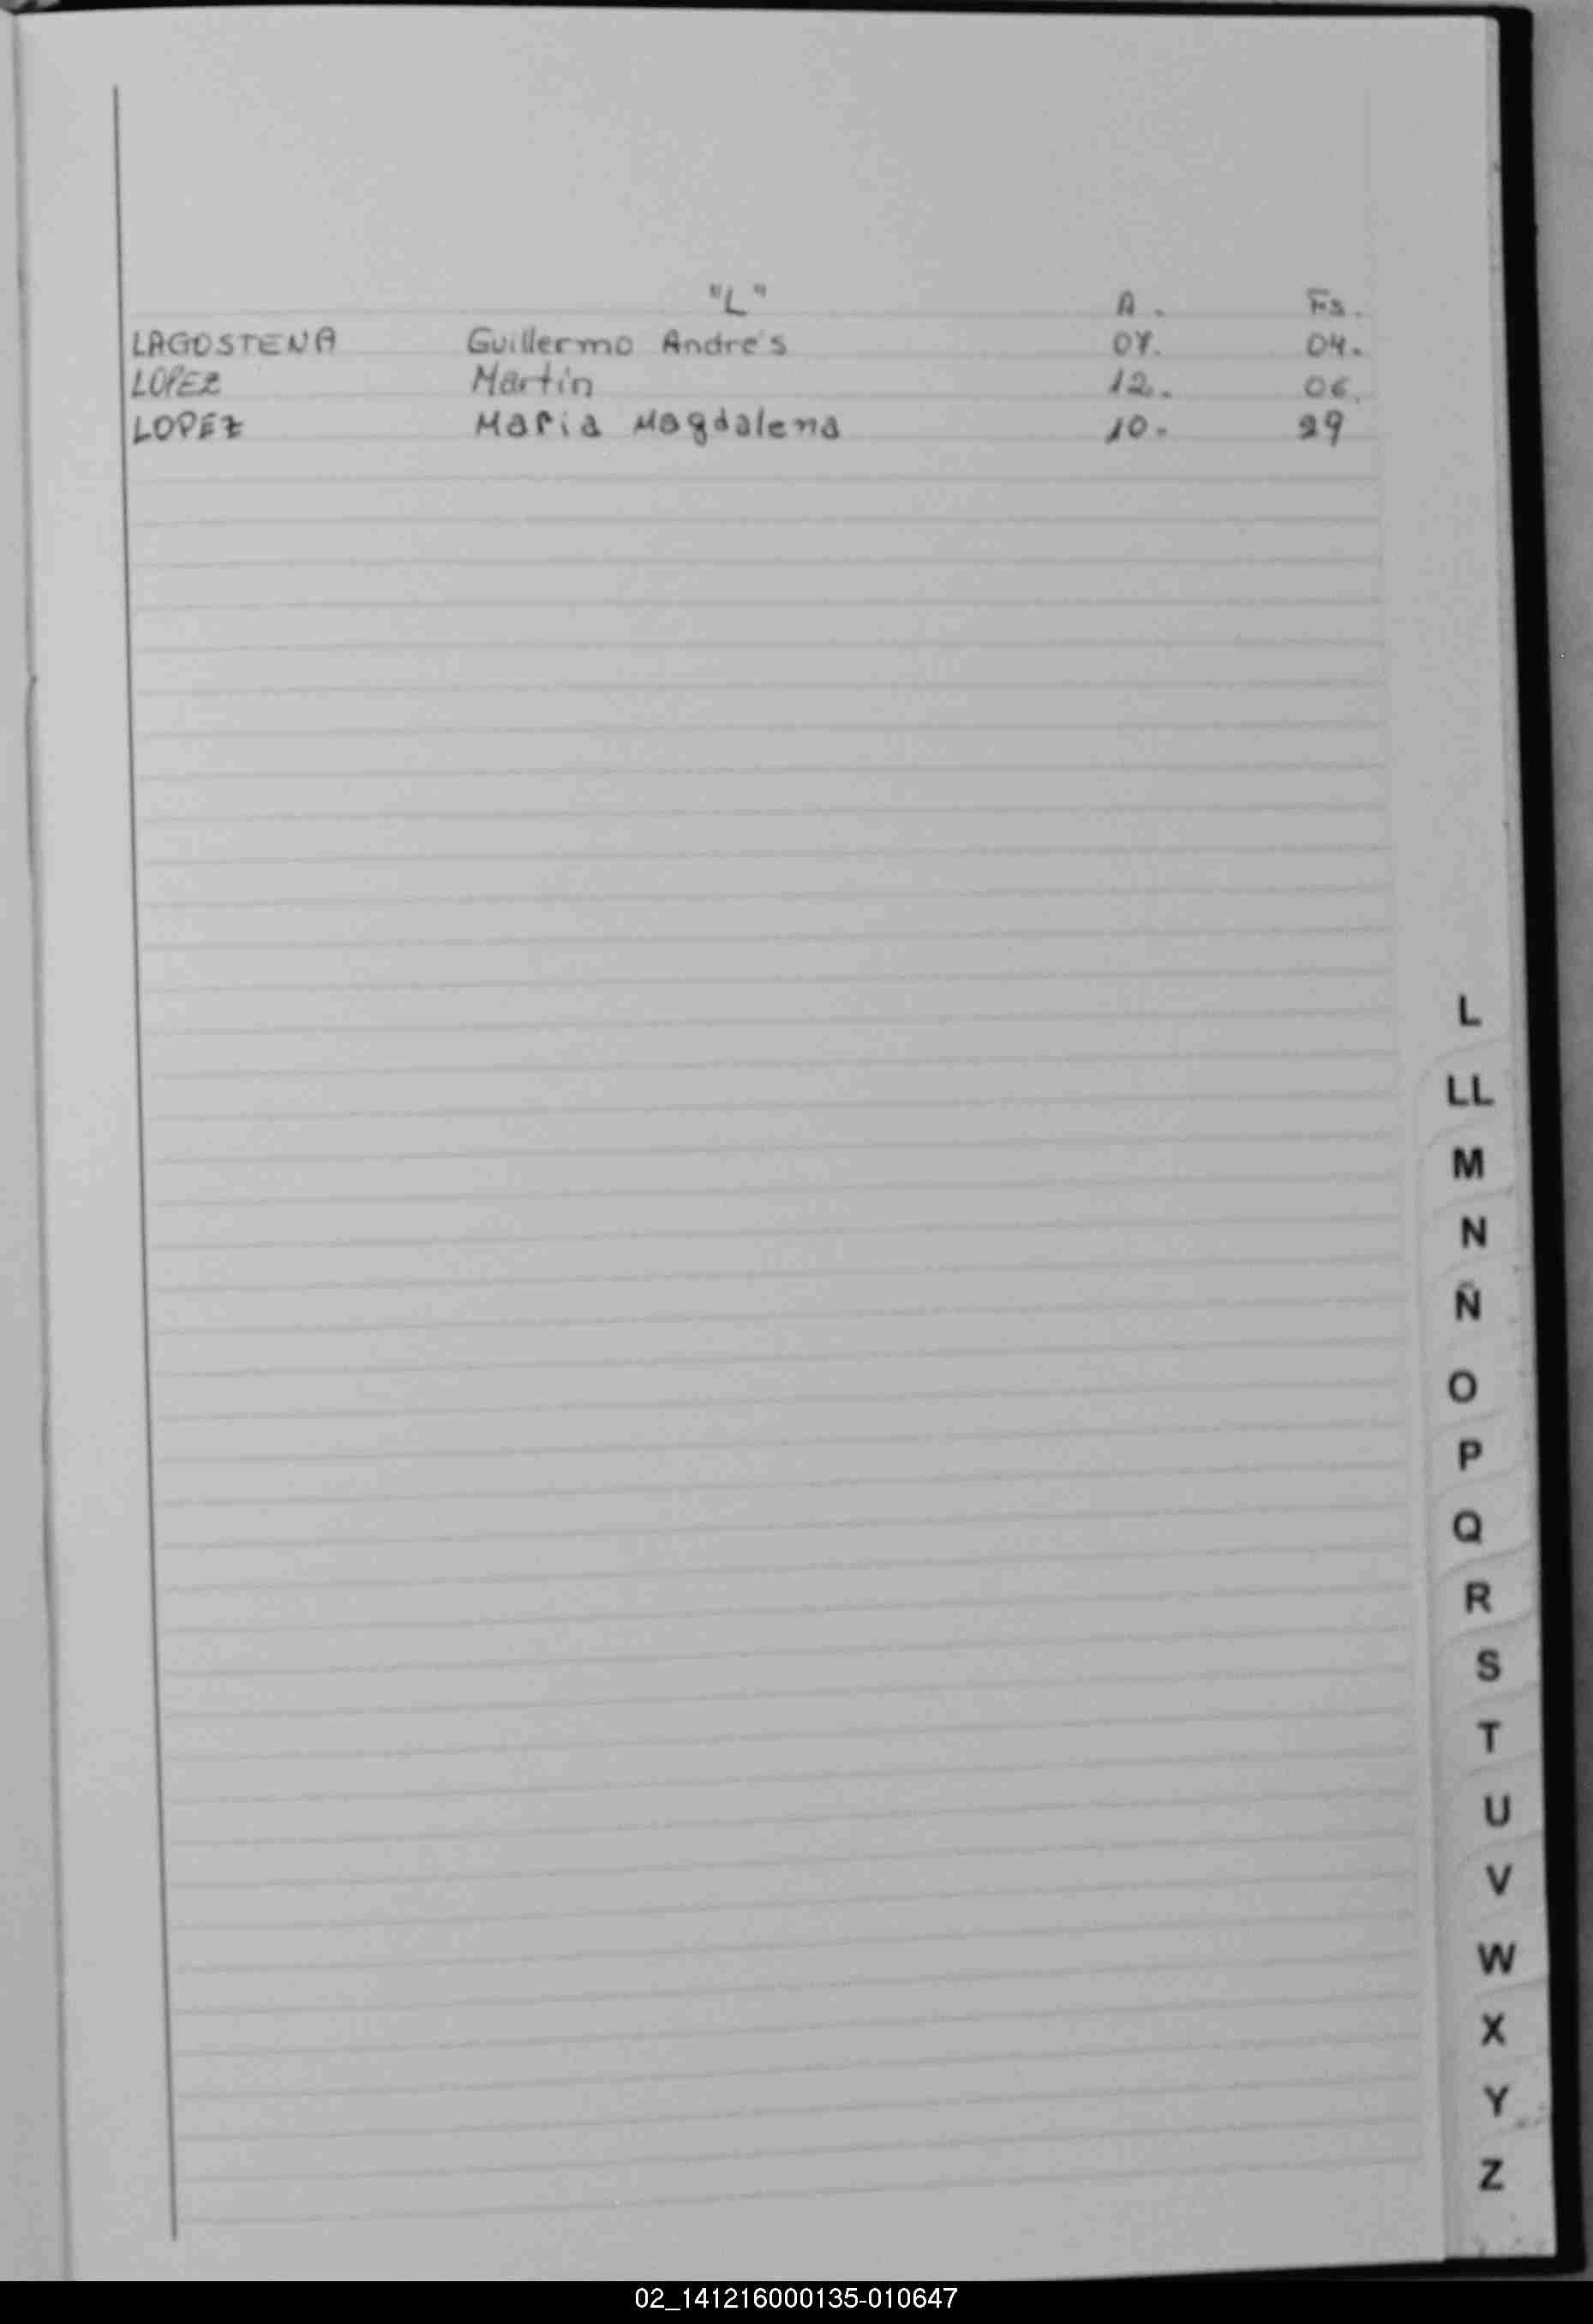 "L" A. Fs.
LAGOSTENA Guillermo Andrés 07. 04.
LOPEZ Martín 12. 06.
LOPEZ Maria Magdalena 10. 29
L
LL
M
N
Ñ
O
P
Q
R
S
T
U
V
W
X
Y
Z
02_141216000135-010647